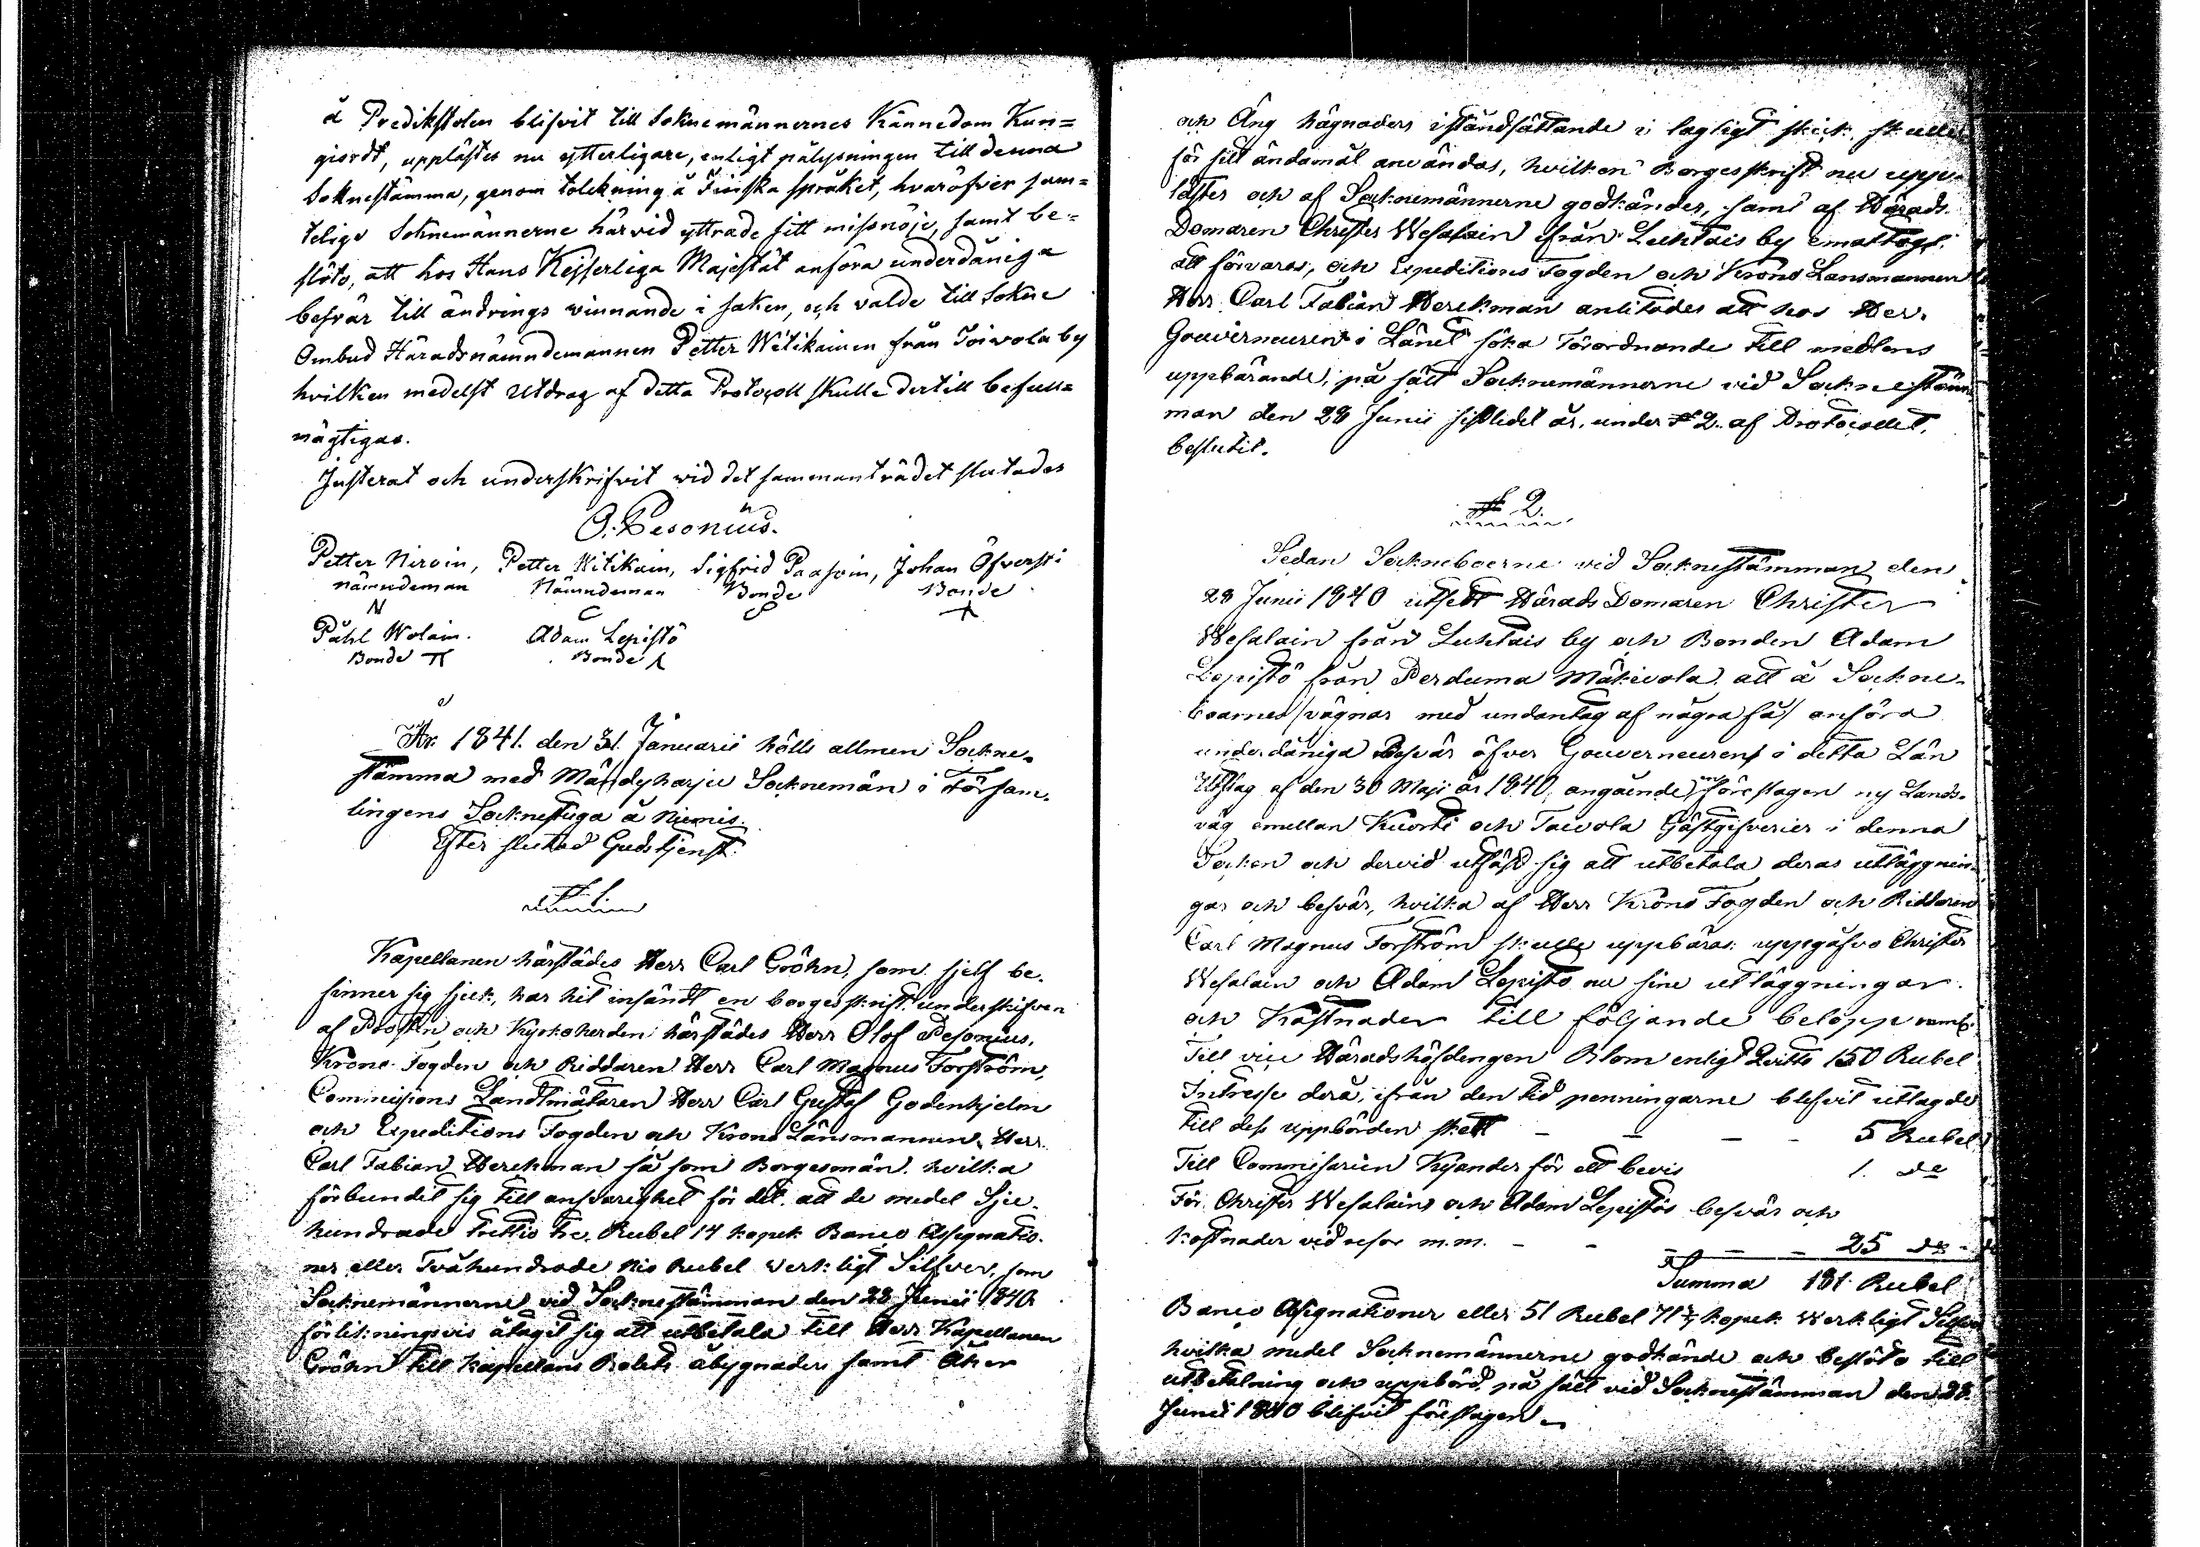 å Predikstolen blifvit till Soknemännernes Kännedom Kun=
giordt, upplästes nu ytterligare, enligt pålysningen till denna
Soknestämma, genom tolckning å Finska språket, hvaröfver sam=
telige Soknemännerne härvid yttrade sitt missnöje, samt be=
slöto, att hos Hans Kejserliga Majestät anföra underdåniga
besvär till ändrings vinnande i saken, och valde till Sokne
Ombud Häradsnämndemannen Petter Witikainen från Toivola by
hvilken medelst Utdrag af detta Protocoll skulle dertill befull=
mägtigas.
Justerat och underskrifvit vid det sammanträdet slutades
O. Pesonius.
Petter Niroin, Petter Witikain, Sigfrid Paasoin, Johan Öfversti
nämndeman Nämndeman Bonde Bonde
Påhl Wolain. Adam Lepistö
Bonde Bonde
År 1841. den 31. Januarii hölls allmen Sockne-
stämma med Mändyharju Socknemän i Försam-
lingens Socknestuga å Niemis.
Efter slutad Gudstjenst.
§ 1.
Kapellanen härstädes Herr Carl Gröhn, som sjelf be-
finner sig sjuk, har hit insändt en borgesskrift underskifven
af Prosten och Kyrkoherden härstädes Herr Olof Pesonius,
Krono Fogden och Riddaren Herr Carl Magnus Forström,
Commissions Landtmätaren Herr Carl Gustaf Godenhjelm
och Expeditions Fogden och Krono Länsmannen Herr
Carl Fabian Herckman så som Borgesmän, hvilka
förbundit sig till ansvarighet för det, att de medel Sju-
hundrade trettio tre Rubel 14 kopek Banco Assignatio-
ner eller Tvåhundrade nio Rubel verkligt Silfver, som
Socknemännerne vid Socknestämman den 28 Junii 1840
förlikningsvis åtagit sig att utbetala till Herr Kapellanen
Gröhn till Kapellans Bolets åbygnaders samt Åker
och Äng hägnaders iståndsättande i lagligt skick, skulle
för sitt ändamål användas, hvilken Borgesskrift nu upp-
lästes och af Socknemännerne godkändes, samt af Härads
Domaren Christer Wesalain ifrån Luhtais by emottogs
att förvaras, och Expeditions Fogden och Krono Länsmannen
Herr Carl Fabian Herckman anlitades att hos Herr
Gouverneuren i Länet söka Förordnande till medlens
uppbärande, på sätt Socknemännerne vid Socknestäm-
man den 28 Junii sistledet år, under § 2. af Protocollet,
beslutit.
§ 2.
Sedan Sockneboerne vid Socknestämman den
28 Junii 1840 utsedt Härads Domaren Christer
Wesalain från Luhtais by och Bonden Adam
Lepistö från Perduma Mäkivola, att å Sockne-
boarnes vägnar med undantag af några få anföra
underdåniga Besvär öfver Gouverneurens i detta Län
Utslag af den 30 Maji år 1840, angående en föreslagen ny Lands-
väg emellan Kuorti och Toivola Gästgifverier i denna
Socken och dervid utfäst sig att utbetala deras utläggnin-
gar och besvär, hvilka af Herr Krono Fogden och Riddaren
Carl Magnus Forström skulle uppbäras; uppgåfvo Christer
Wesalain och Adam Lepistö nu sine utläggningar
och Kostnader till följande belopp neml.
Till vice Häradshöfdingen Blom enligt Qvitto 150 Rubel
Intresse derå, ifrån den tid penningarne blifvit uttagde
till dess uppbörden skett – – – – 5 Rubel
Till Commissarien Kyander för ett bevis 1. do
För Christer Wesalains och Adam Lepistös besvär och
kostnader vid resor m.m. – – – – 25 do
Summa 181 Rubel
Banco Assignationer eller 51 Rubel 71 3/7 kopek Werkligt Silfver
hvilka medel Socknemännerne godkände och beslöto till
utbetalning och uppbörd på sätt vid Socknestämman den 28.
Junii 1840 blifvit föreslagen.